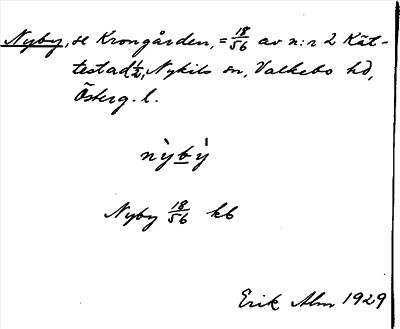 Nyby, se Krongården, = 18/56 av n:r 2 Kät-
testad 1/2, Nykils sn, Valkebo hd,
Österg. l.
nỳbý
Nyby 18/56 kb
Erik Alm 1929